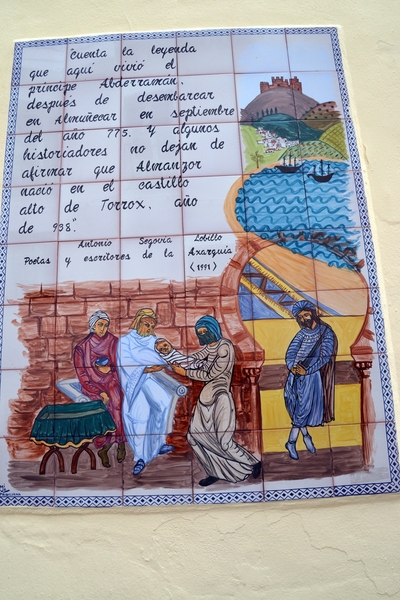 "Cuenta la leyenda
que aquí vivió el
príncipe Abderramán,
después de desembarcar
en Almuñecar en septiembre
del año 775. Y algunos
historiadores no dejan de
afirmar que Almanzor
nació en el castillo
alto de Torrox, año
de 938".
Antonio Segovia Lobillo
Poetas y escritores de la Axarquía
(1991)